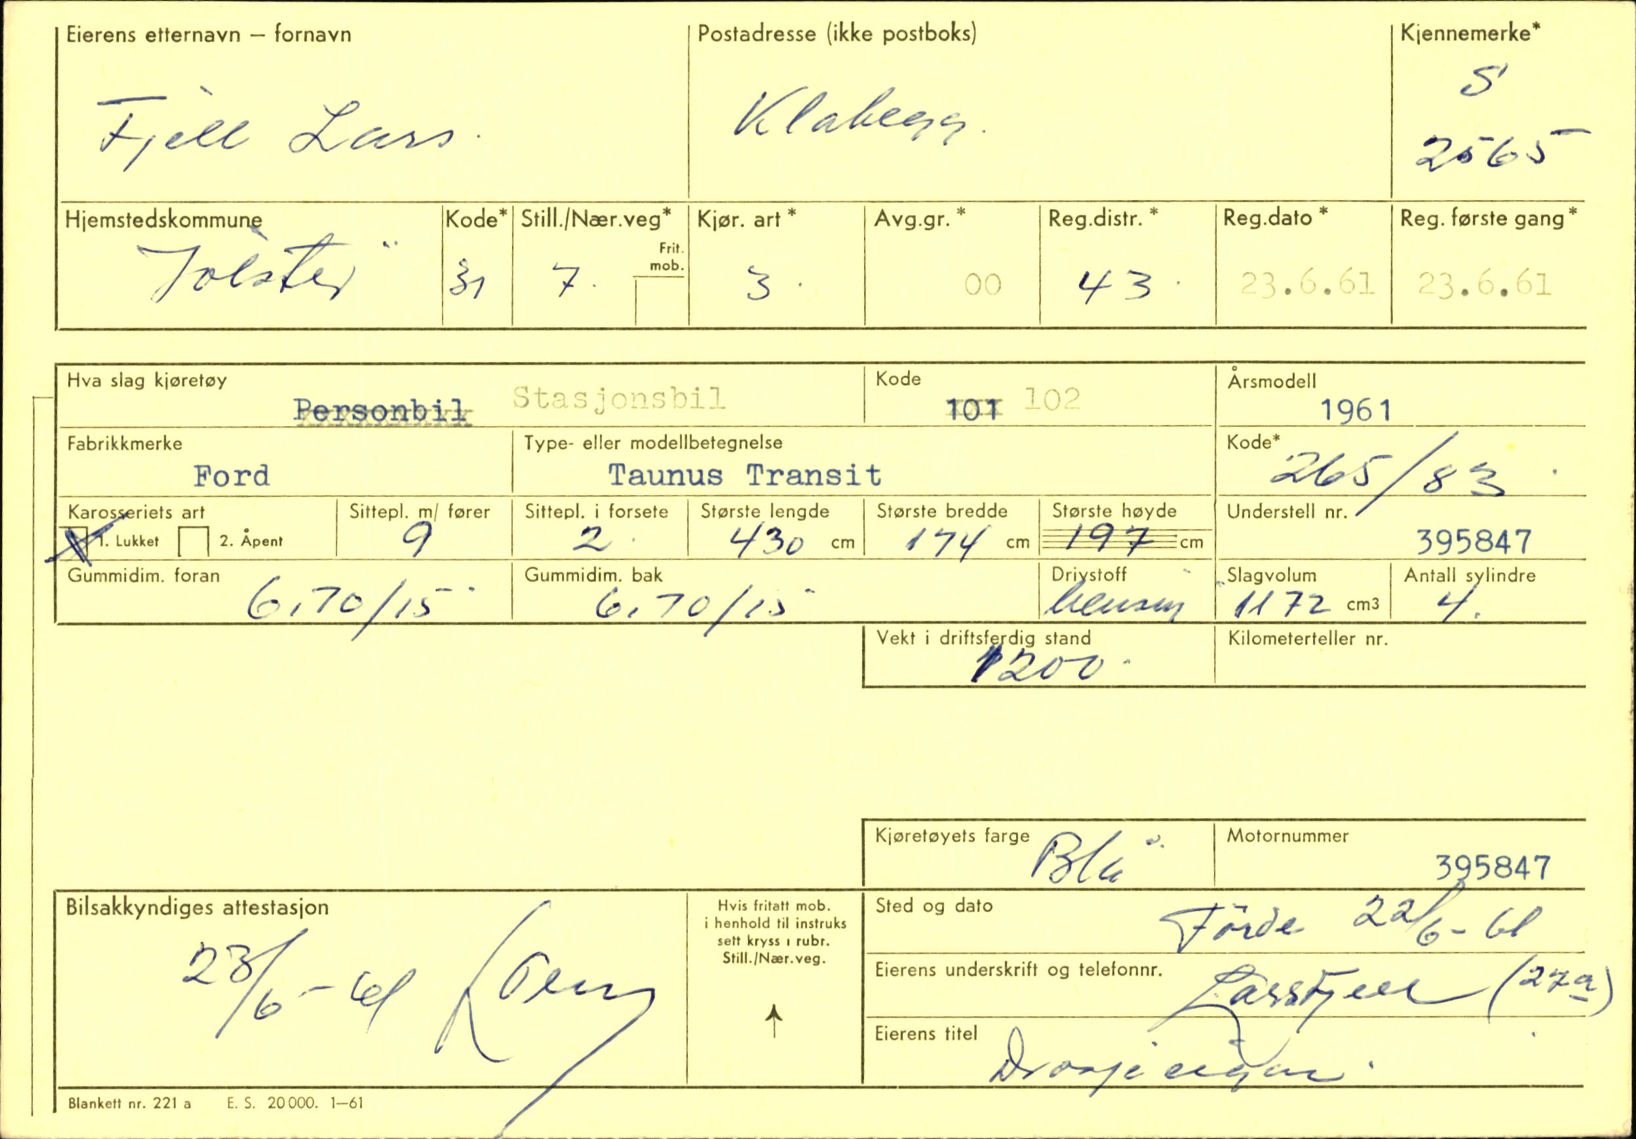 Eierens etternavn – fornavn Postadresse (ikke postboks) Kjennemerke*
Fjell Lars. Klakegg. S
2565
Hjemstedskommune Kode* Still./Nær.veg* Kjør. art* Avg.gr.* Reg.distr.* Reg.dato* Reg. første gang*
Frit. mob.
Jölster 31 7. 3. 00 43. 23.6.61 23.6.61
Hva slag kjøretøy Kode Årsmodell
Personbil Stasjonsbil 101 102 1961
Fabrikkmerke Type- eller modellbetegnelse Kode*
Ford Taunus Transit 265/83
Karosseriets art Sittepl. m/ fører Sittepl. i forsete Største lengde Største bredde Største høyde Understell nr.
1. Lukket 2. Åpent 9 2. 430 cm 174 cm 197 cm 395847
Gummidim. foran Gummidim. bak Drivstoff Slagvolum Antall sylindre
6,70/15 6,70/15 bensin 1172 cm3 4.
Vekt i driftsferdig stand Kilometerteller nr.
1200.
Kjøretøyets farge Motornummer
Blå 395847
Bilsakkyndiges attestasjon Hvis fritatt mob. Sted og dato
i henhold til instruks
sett kryss i rubr.
Still./Nær.veg.
Förde 22/6-61
23/6-61
Eierens underskrift og telefonnr.
Lars Fjell (27a)
Eierens titel
Drosjeeigar.
Blankett nr. 221 a E. S. 20 000. 1–61